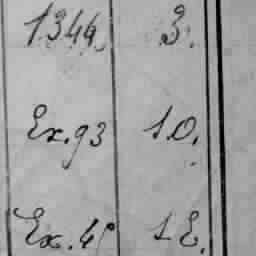 1344. 3.
Ex. 93 10.
Ex. 45 1E.